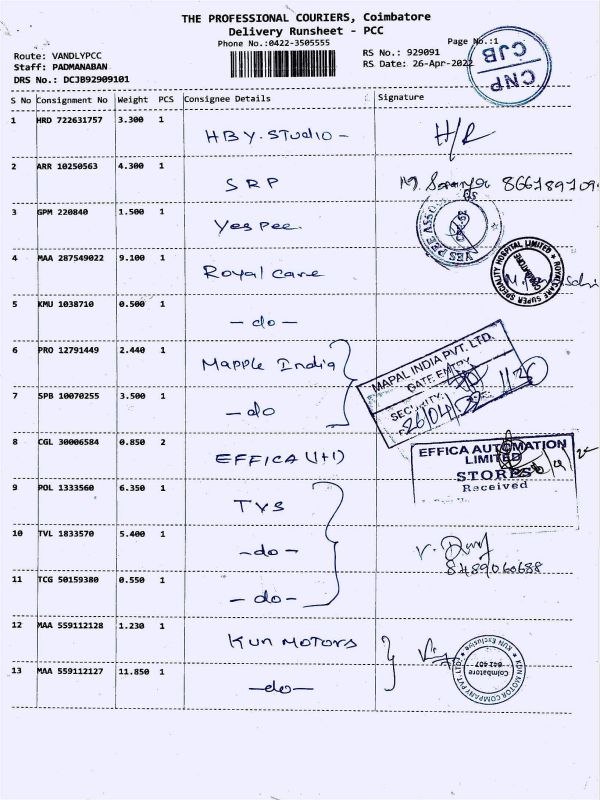 THE PROFESSIONAL COURIERS, Coimbatore
Delivery Runsheet - PCC
Phone No.:0422-3505555
Page No.:1
Route: VANDLYPCC
RS No.: 929091
Staff: PADMANABAN
RS Date: 26-Apr-2022
DRS No.: DCJB92909101
CNP
CJB
S No Consignment No Weight PCS Consignee Details Signature
1 HRD 722631757 3.300 1 HBY.STUDIO - H/R
2 ARR 10250563 4.300 1 SRP
3 GPM 220840 1.500 1 Yes pee
YES PEE ASSO
4 MAA 287549022 9.100 1 Royal care
ROYALCARE SUPER SPECIALITY HOSPITAL LIMITED
5 KMU 1038710 0.500 1 - do -
6 PRO 12791449 2.440 1 Mapple India
MAPAL INDIA PVT. LTD.
GATE ENTRY
SECURITY
7 SPB 10070255 3.500 1 - do
8 CGL 30006584 0.850 2 EFFICA (1+1)
EFFICA AUTOMATION
LIMITED
STORES
Received
9 POL 1333560 6.350 1 TVS
10 TVL 1833570 5.400 1 - do -
8489060688
11 TCG 50159380 0.550 1 - do -
12 MAA 559112128 1.230 1 KUN MOTORS
KUN MOTOR COMPANY PVT. LTD
KUN Exclusive
Coimbatore
641 407
13 MAA 559112127 11.850 1 - do -